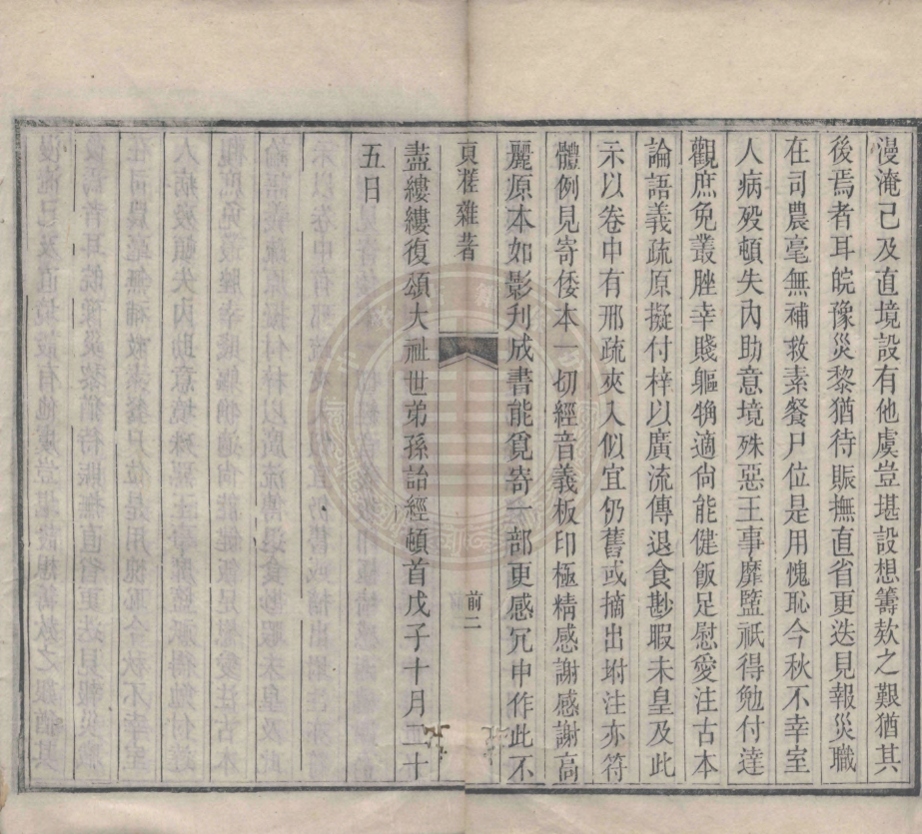 漫淹已及直境設有他虞豈堪設想籌欵之艱猶其
後焉者耳皖豫災黎猶待賑撫直省更迭見報災職
在司農毫無補救素餐尸位是用愧恥今秋不幸室
人病歿頓失內助意境殊惡王事靡盬祇得勉付達
觀庶免叢脞幸賤軀觕適尙能健飯足慰愛注古本
論語義疏原擬付梓以廣流傳退食尟暇未皇及此
示以卷中有邢疏夾入似宜仍舊或摘出坿注亦符
體例見寄倭本一切經音義板印極精感謝感謝高
麗原本如影刋成書能覓寄一部更感冗中作此不
東槎雜著
前二
盡縷縷復頌大祉世弟孫詒經頓首戊子十月二十
五日